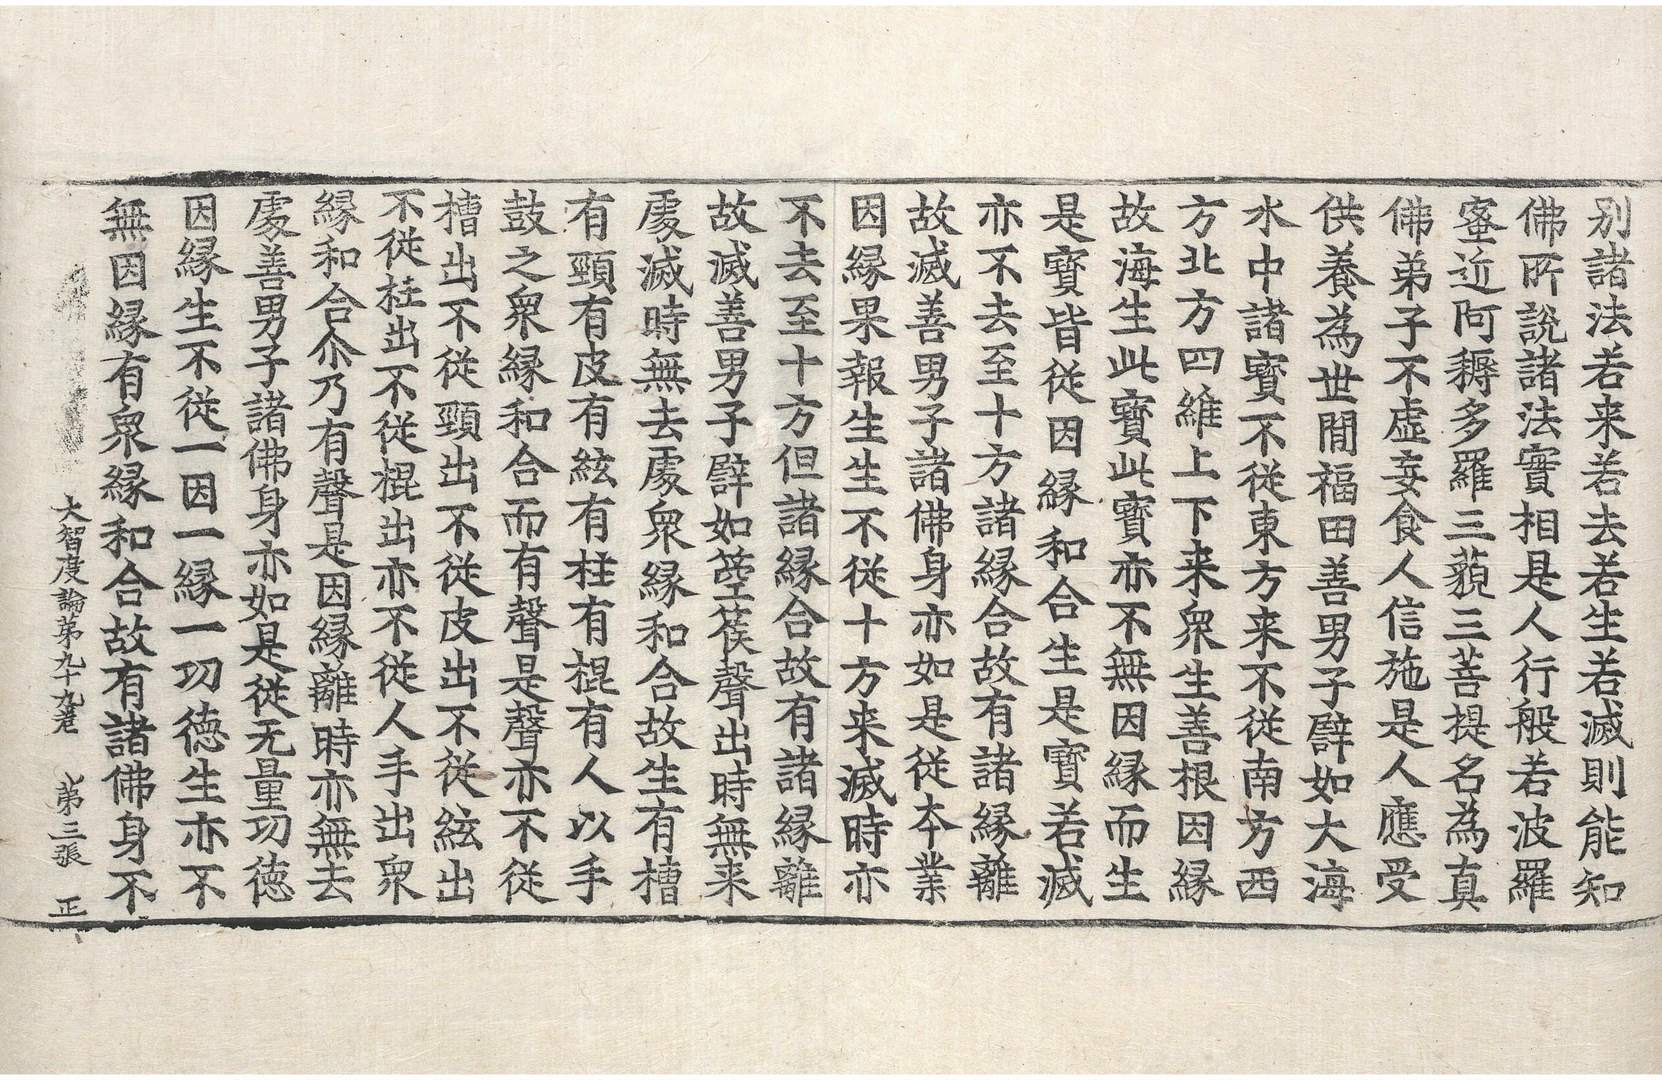 別諸法若来若去若生若滅則能知
佛所說諸法實相是人行般若波羅
蜜近阿耨多羅三藐三菩提名為真
佛弟子不虛妄食人信施是人應受
供養為世閒福田善男子譬如大海
水中諸寶不從東方来不從南方西
方北方四維上下来衆生善根因緣
故海生此寶此寶亦不無因緣而生
是寶皆從因緣和合生是寶若滅
亦不去至十方諸緣合故有諸緣離
故滅善男子諸佛身亦如是從本業
因緣果報生生不從十方来滅時亦
不去至十方但諸緣合故有諸緣離
故滅善男子譬如箜篌聲出時無来
處滅時無去處衆緣和合故生有槽
有頸有皮有絃有柱有棍有人以手
鼓之衆緣和合而有聲是聲亦不從
槽出不從頸出不從皮出不從絃出
不從柱出不從棍出亦不從人手出衆
緣和合尒乃有聲是因緣離時亦無去
處善男子諸佛身亦如是從无量功德
因緣生不從一因一緣一功德生亦不
無因緣有衆緣和合故有諸佛身不
大智度論第九十九卷 第三張 正